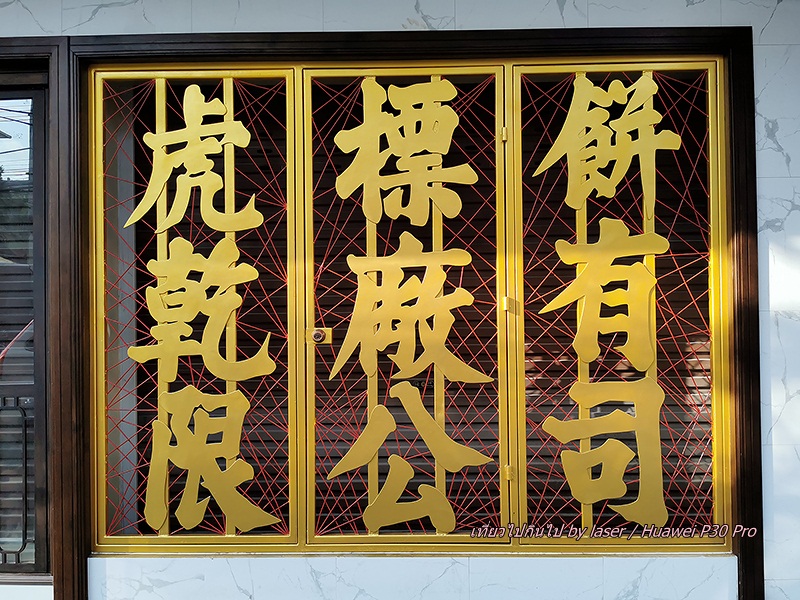 虎標餅
乾廠有
限公司
เที่ยวไปกินไป by laser / Huawei P30 Pro